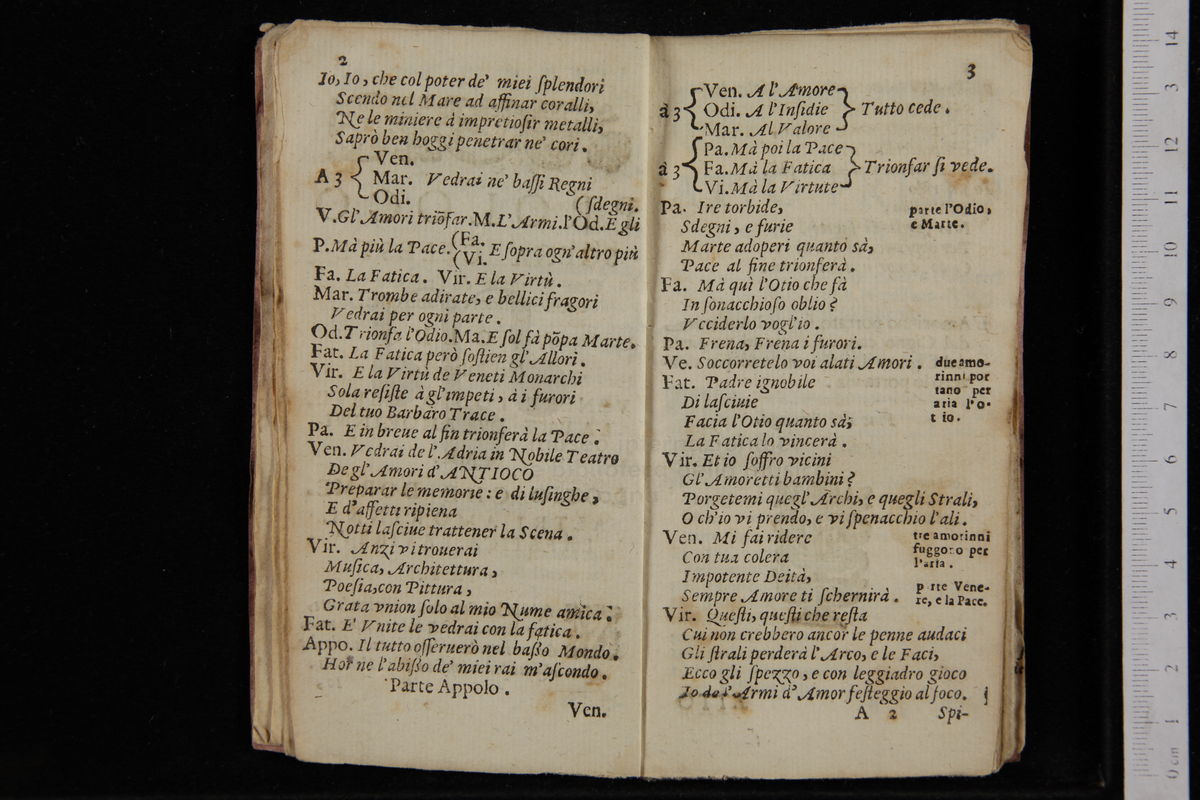 2
Io, Io, che col poter de' miei ſplendori
Scendo nel Mare ad affinar coralli,
Ne le miniere à impretioſir metalli,
Saprò ben hoggi penetrar ne' cori.
Ven.
A 3 { Mar. Vedrai ne' baſſi Regni
Odi. (ſdegni.
V. Gl'Amori triõfar. M. L'Armi. l'Od. E gli
P. Mà più la Pace. (Fa. (Vi. E ſopra ogn'altro più
Fa. La Fatica. Vir. E la Virtù.
Mar. Trombe adirate, e bellici fragori
Vedrai per ogni parte.
Od. Trionfa l'Odio. Ma. E ſol fà põpa Marte.
Fat. La Fatica però ſoſtien gl'Allori.
Vir. E la Virtù de Veneti Monarchi
Sola reſiſte à gl'impeti, à i furori
Del tuo Barbaro Trace.
Pa. E in breue al fin trionferà la Pace.
Ven. Vedrai de l'Adria in Nobile Teatro
De gl'Amori d'ANTIOCO
Preparar le memorie: e di luſinghe,
E d'affetti ripiena
Notti laſciue trattener la Scena.
Vir. Anzi vi trouerai
Muſica, Architettura,
Poeſia, con Pittura,
Grata vnion ſolo al mio Nume amica.
Fat. E' Vnite le vedrai con la fatica.
Appo. Il tutto oſſeruerò nel baßo Mondo.
Hor ne l'abißo de' miei rai m'aſcondo.
Parte Appolo.
Ven.
3
Ven. A l'Amore
à 3 { Odi. A l'Inſidie } Tutto cede.
Mar. Al Valore
Pa. Mà poi la Pace
à 3 { Fa. Mà la Fatica } Trionfar ſi vede.
Vi. Mà la Virtute
Pa. Ire torbide, parte l'Odio,
Sdegni, e furie e Marte.
Marte adoperi quanto sà,
Pace al fine trionferà.
Fa. Mà quì l'Otio che fà
In ſonacchioſo oblio?
Vcciderlo vogl'io.
Pa. Frena, Frena i furori.
Ve. Soccorretelo voi alati Amori. due amo-
Fat. Padre ignobile rinni por
Di laſciuie tano per
Facia l'Otio quanto sà; aria l'o-
La Fatica lo vincerà. tio.
Vir. Et io ſoffro vicini
Gl'Amoretti bambini?
Porgetemi quegl'Archi, e quegli Strali,
O ch'io vi prendo, e vi ſpenacchio l'ali.
Ven. Mi fai ridere tre amorinni
Con tua colera fuggono per
Impotente Deità, l'aria.
Sempre Amore ti ſchernirà. parte Vene-
re, e la Pace.
Vir. Queſti, queſti che reſta
Cui non crebbero ancor le penne audaci
Gli ſtrali perderà l'Arco, e le Faci,
Ecco gli ſpezzo, e con leggiadro gioco
Io de l'Armi d'Amor feſteggio al foco.
A 2 Spi-
0 cm 1 2 3 4 5 6 7 8 9 10 11 12 3 14